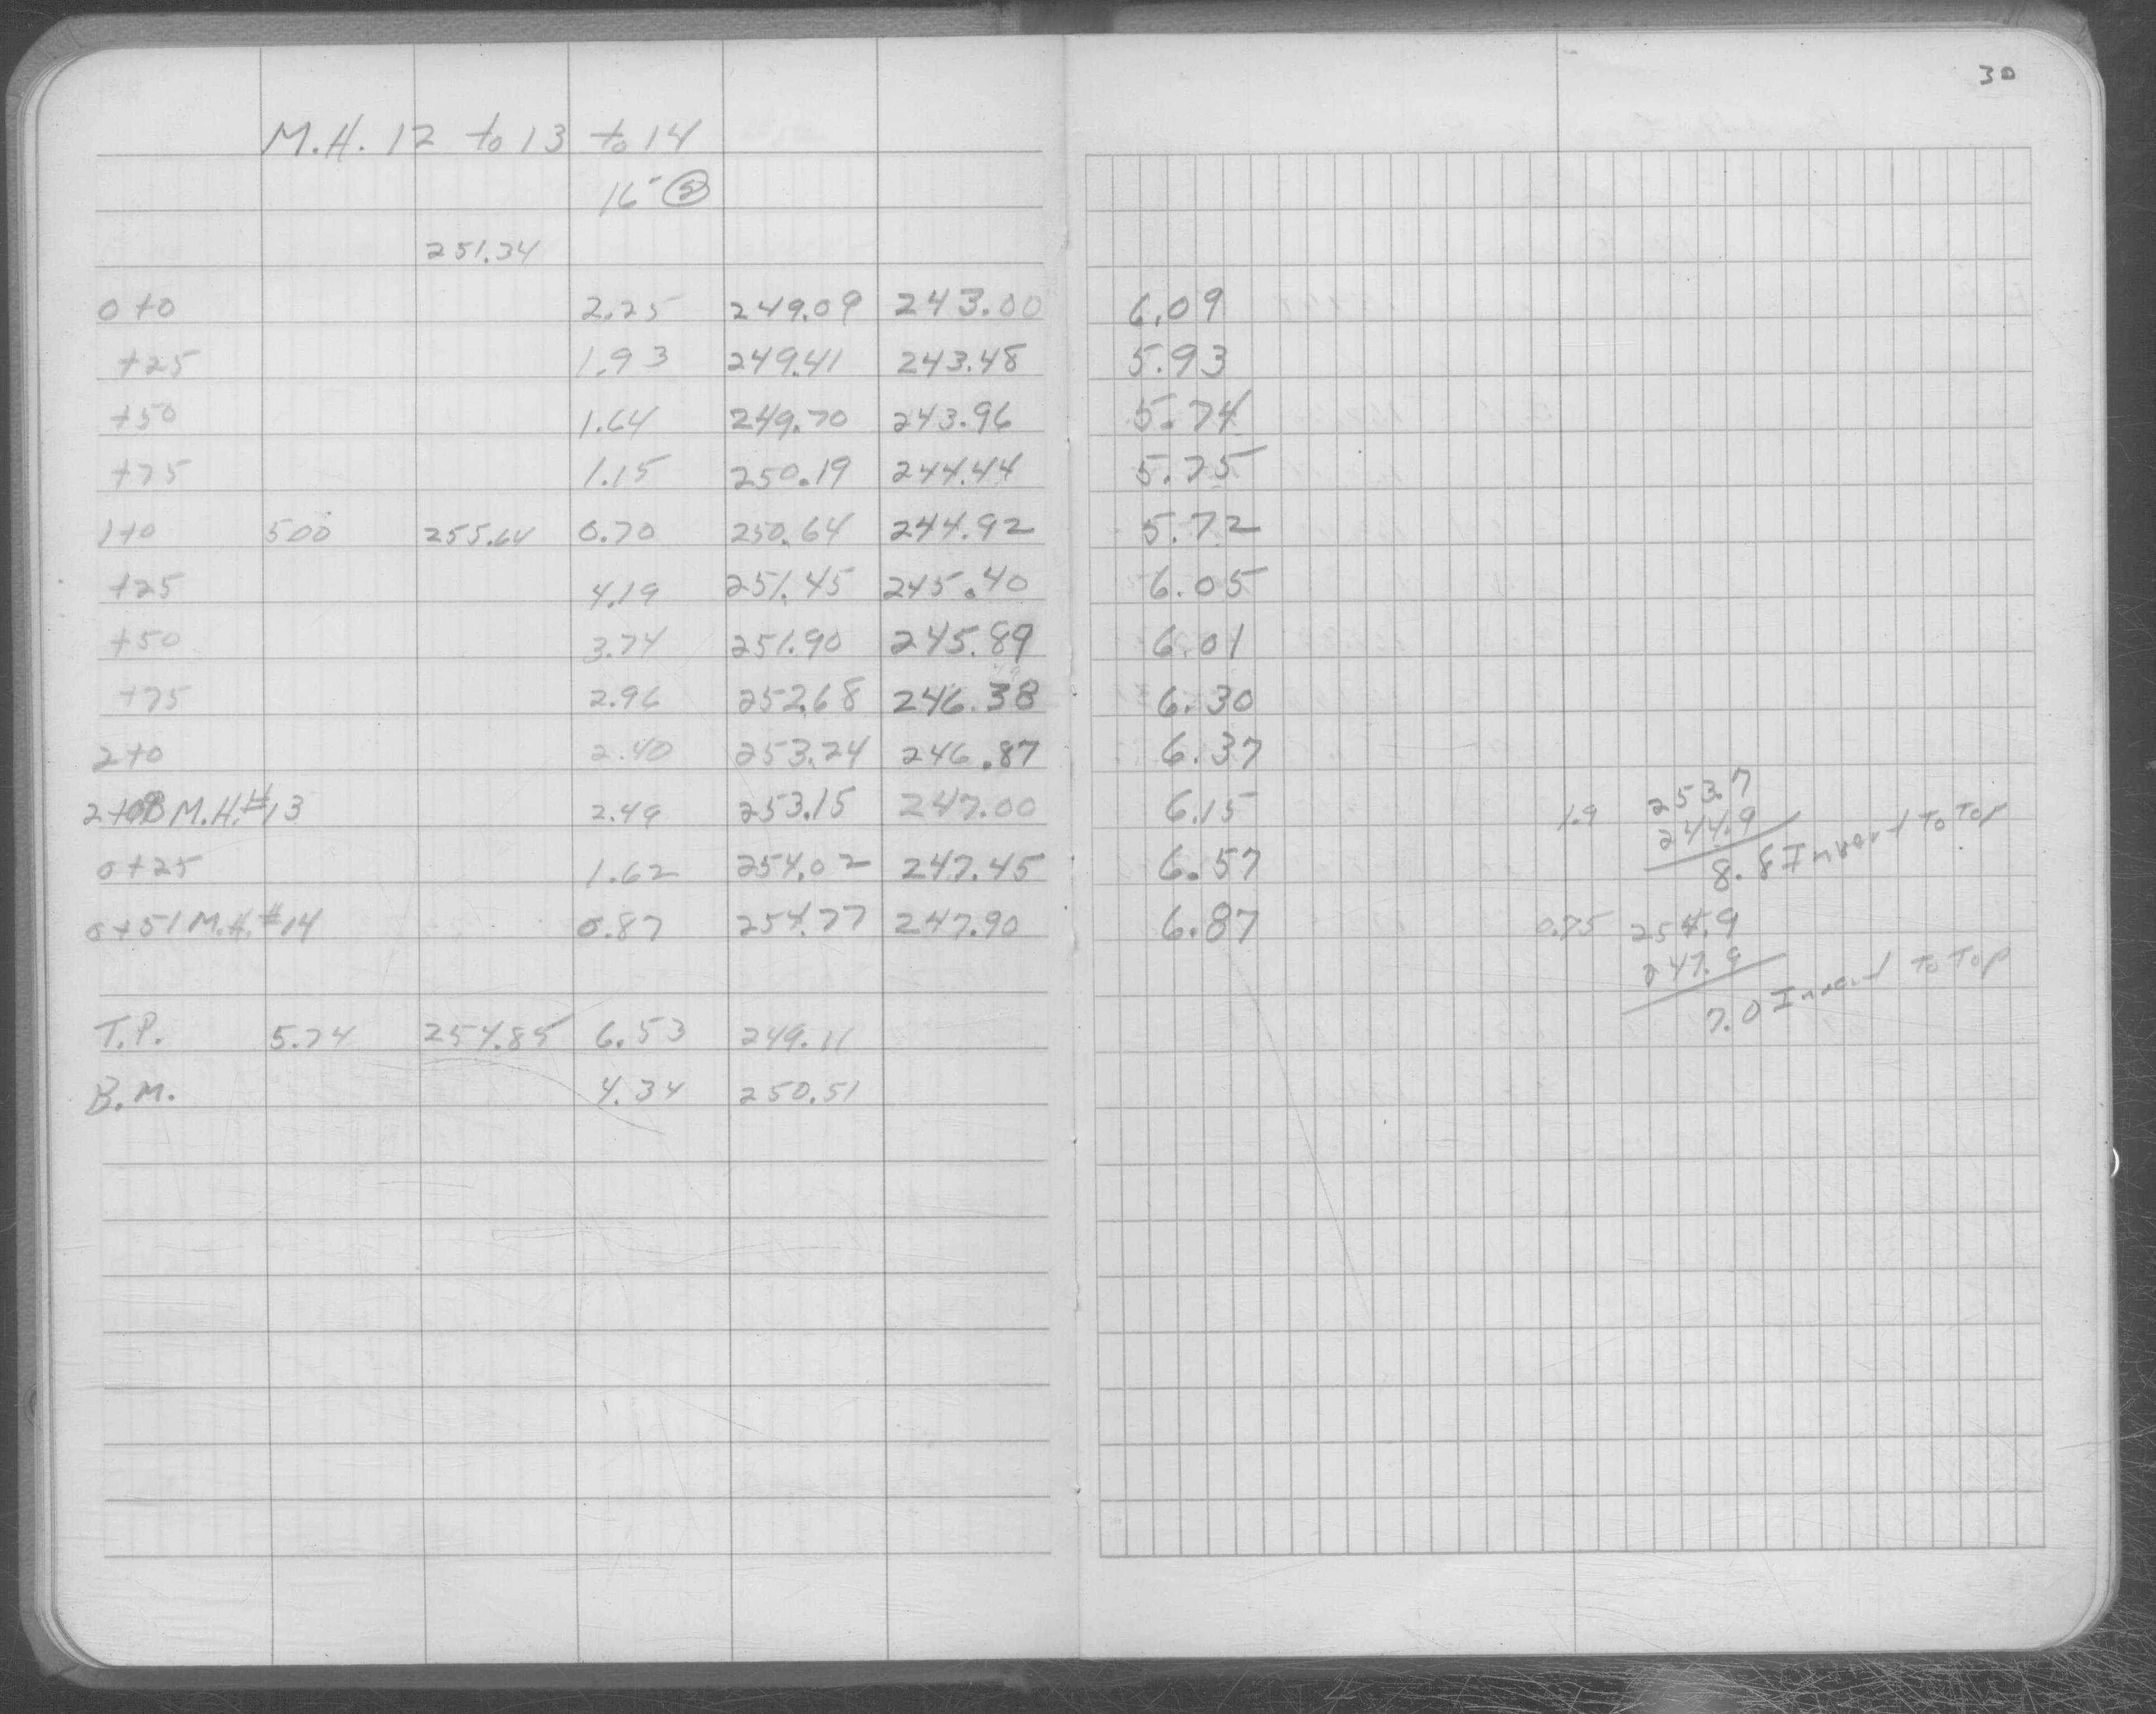 30
M.H. 12 to 13 to 14
16" (5)
251.34
0+0 2.25 249.09 243.00 6.09
+25 1.93 249.41 243.48 5.93
+50 1.64 249.70 243.96 5.74
+75 1.15 250.19 244.44 5.75
1+0 500 255.64 0.70 250.64 244.92 5.72
+25 4.19 251.45 245.40 6.05
+50 3.74 251.90 245.89 6.01
+75 2.96 252.68 246.38 6.30
2+0 2.40 253.24 246.87 6.37
M.H.#13 2.49 253.15 247.00 6.15 1.9 253.7
244.9
8.8 Invert To Top
0+25 1.62 254.02 247.45 6.57
0+51 M.H.#14 0.87 254.77 247.90 6.87 0.75 254.9
247.9
7.0 Invert To Top
T.P. 5.74 254.85 6.53 249.11
B.M. 4.34 250.51